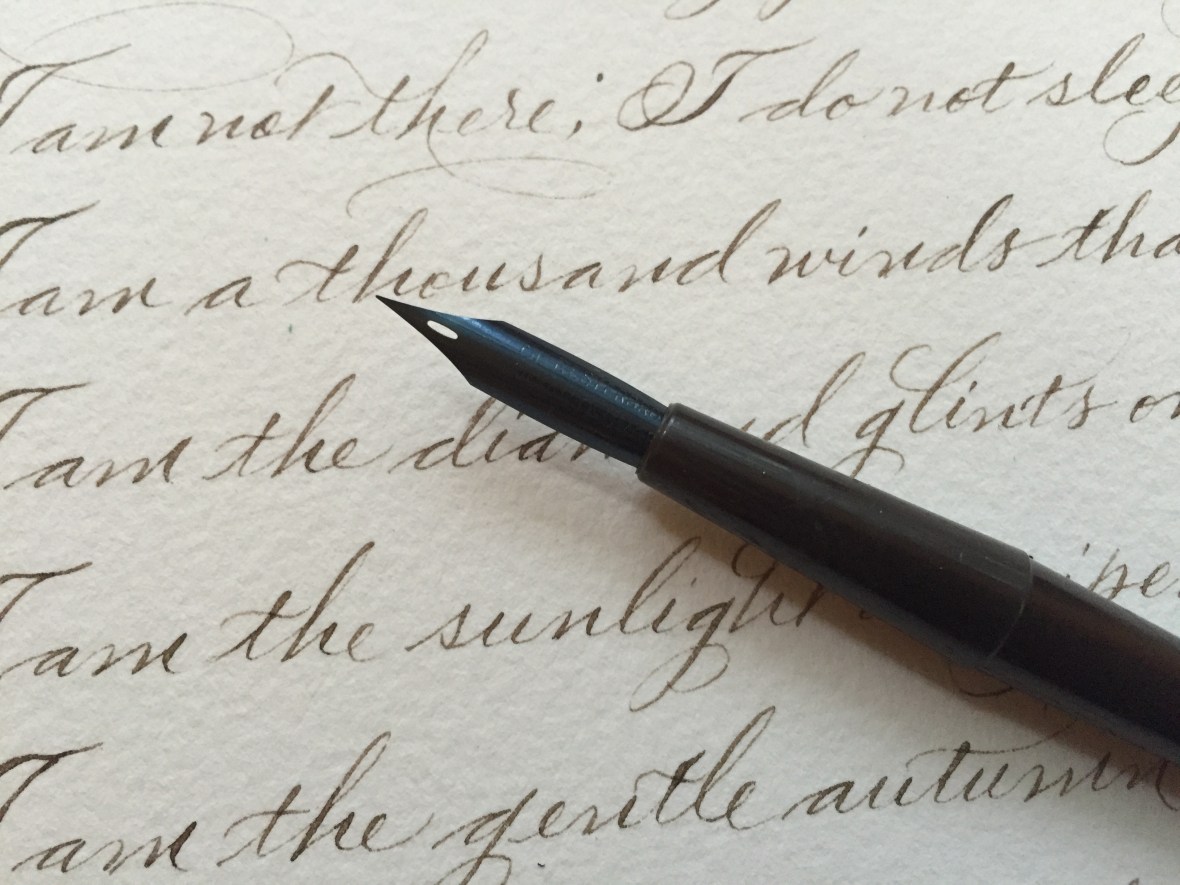 I am not there; I do not slee
I am a thousand winds tha
I am the diam nd glints o
I am the sunligh ripe
I am the gentle autumn